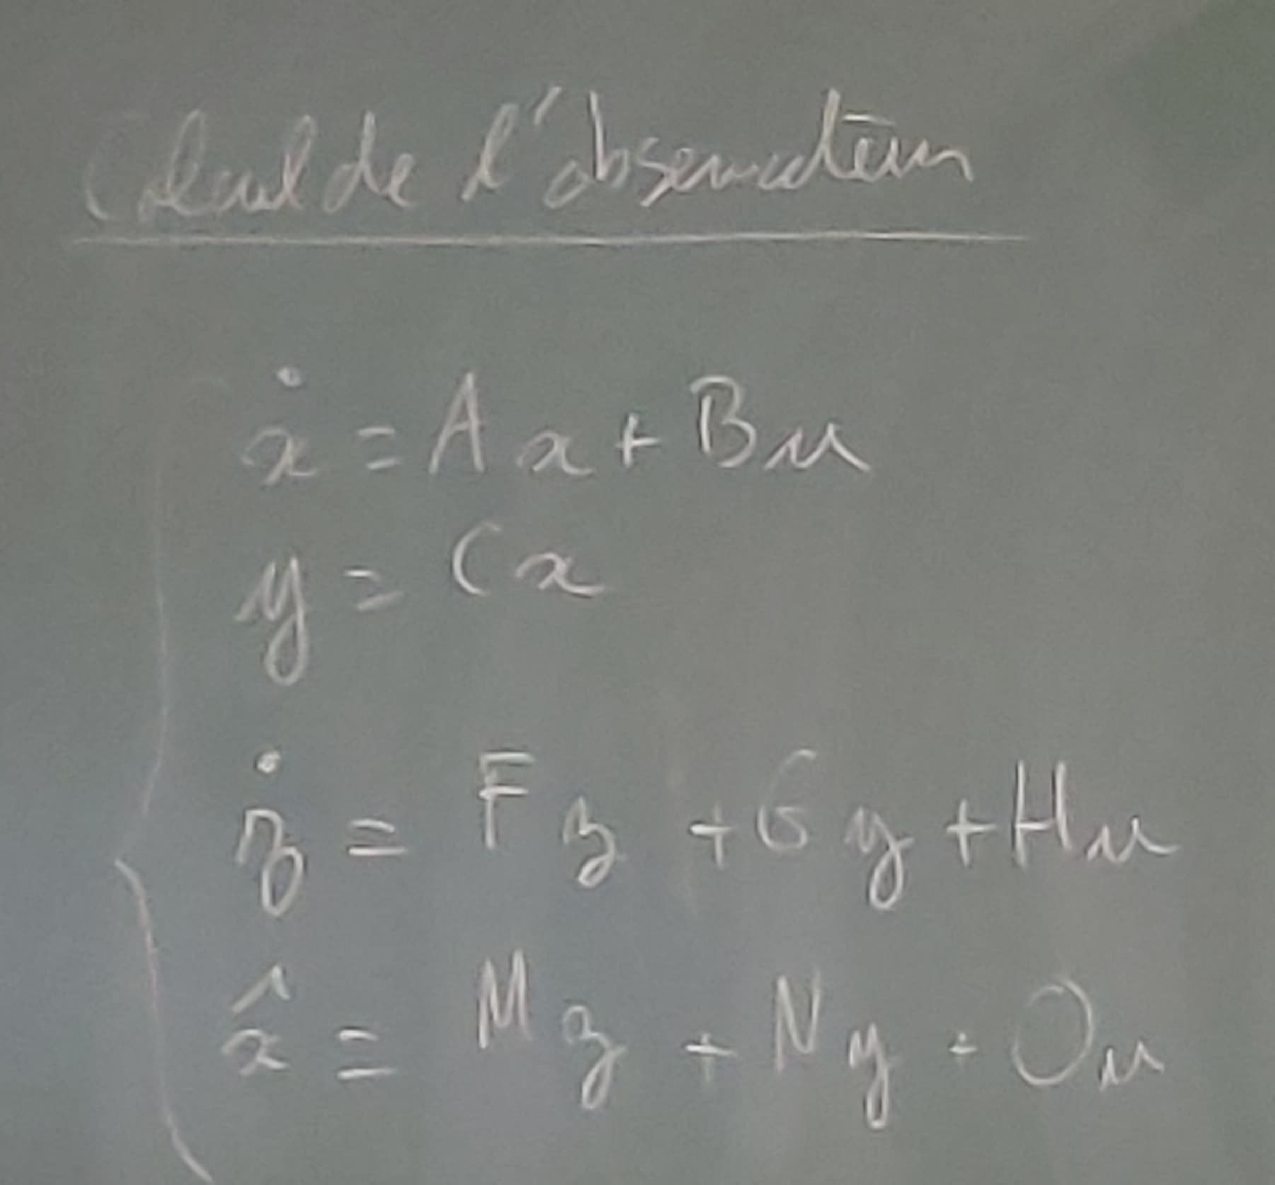 Calcul de l'observateur
ẋ = Ax + Bu
y = Cx
ż = Fz + Gy + Hu
x̂ = Mz + Ny + Ou